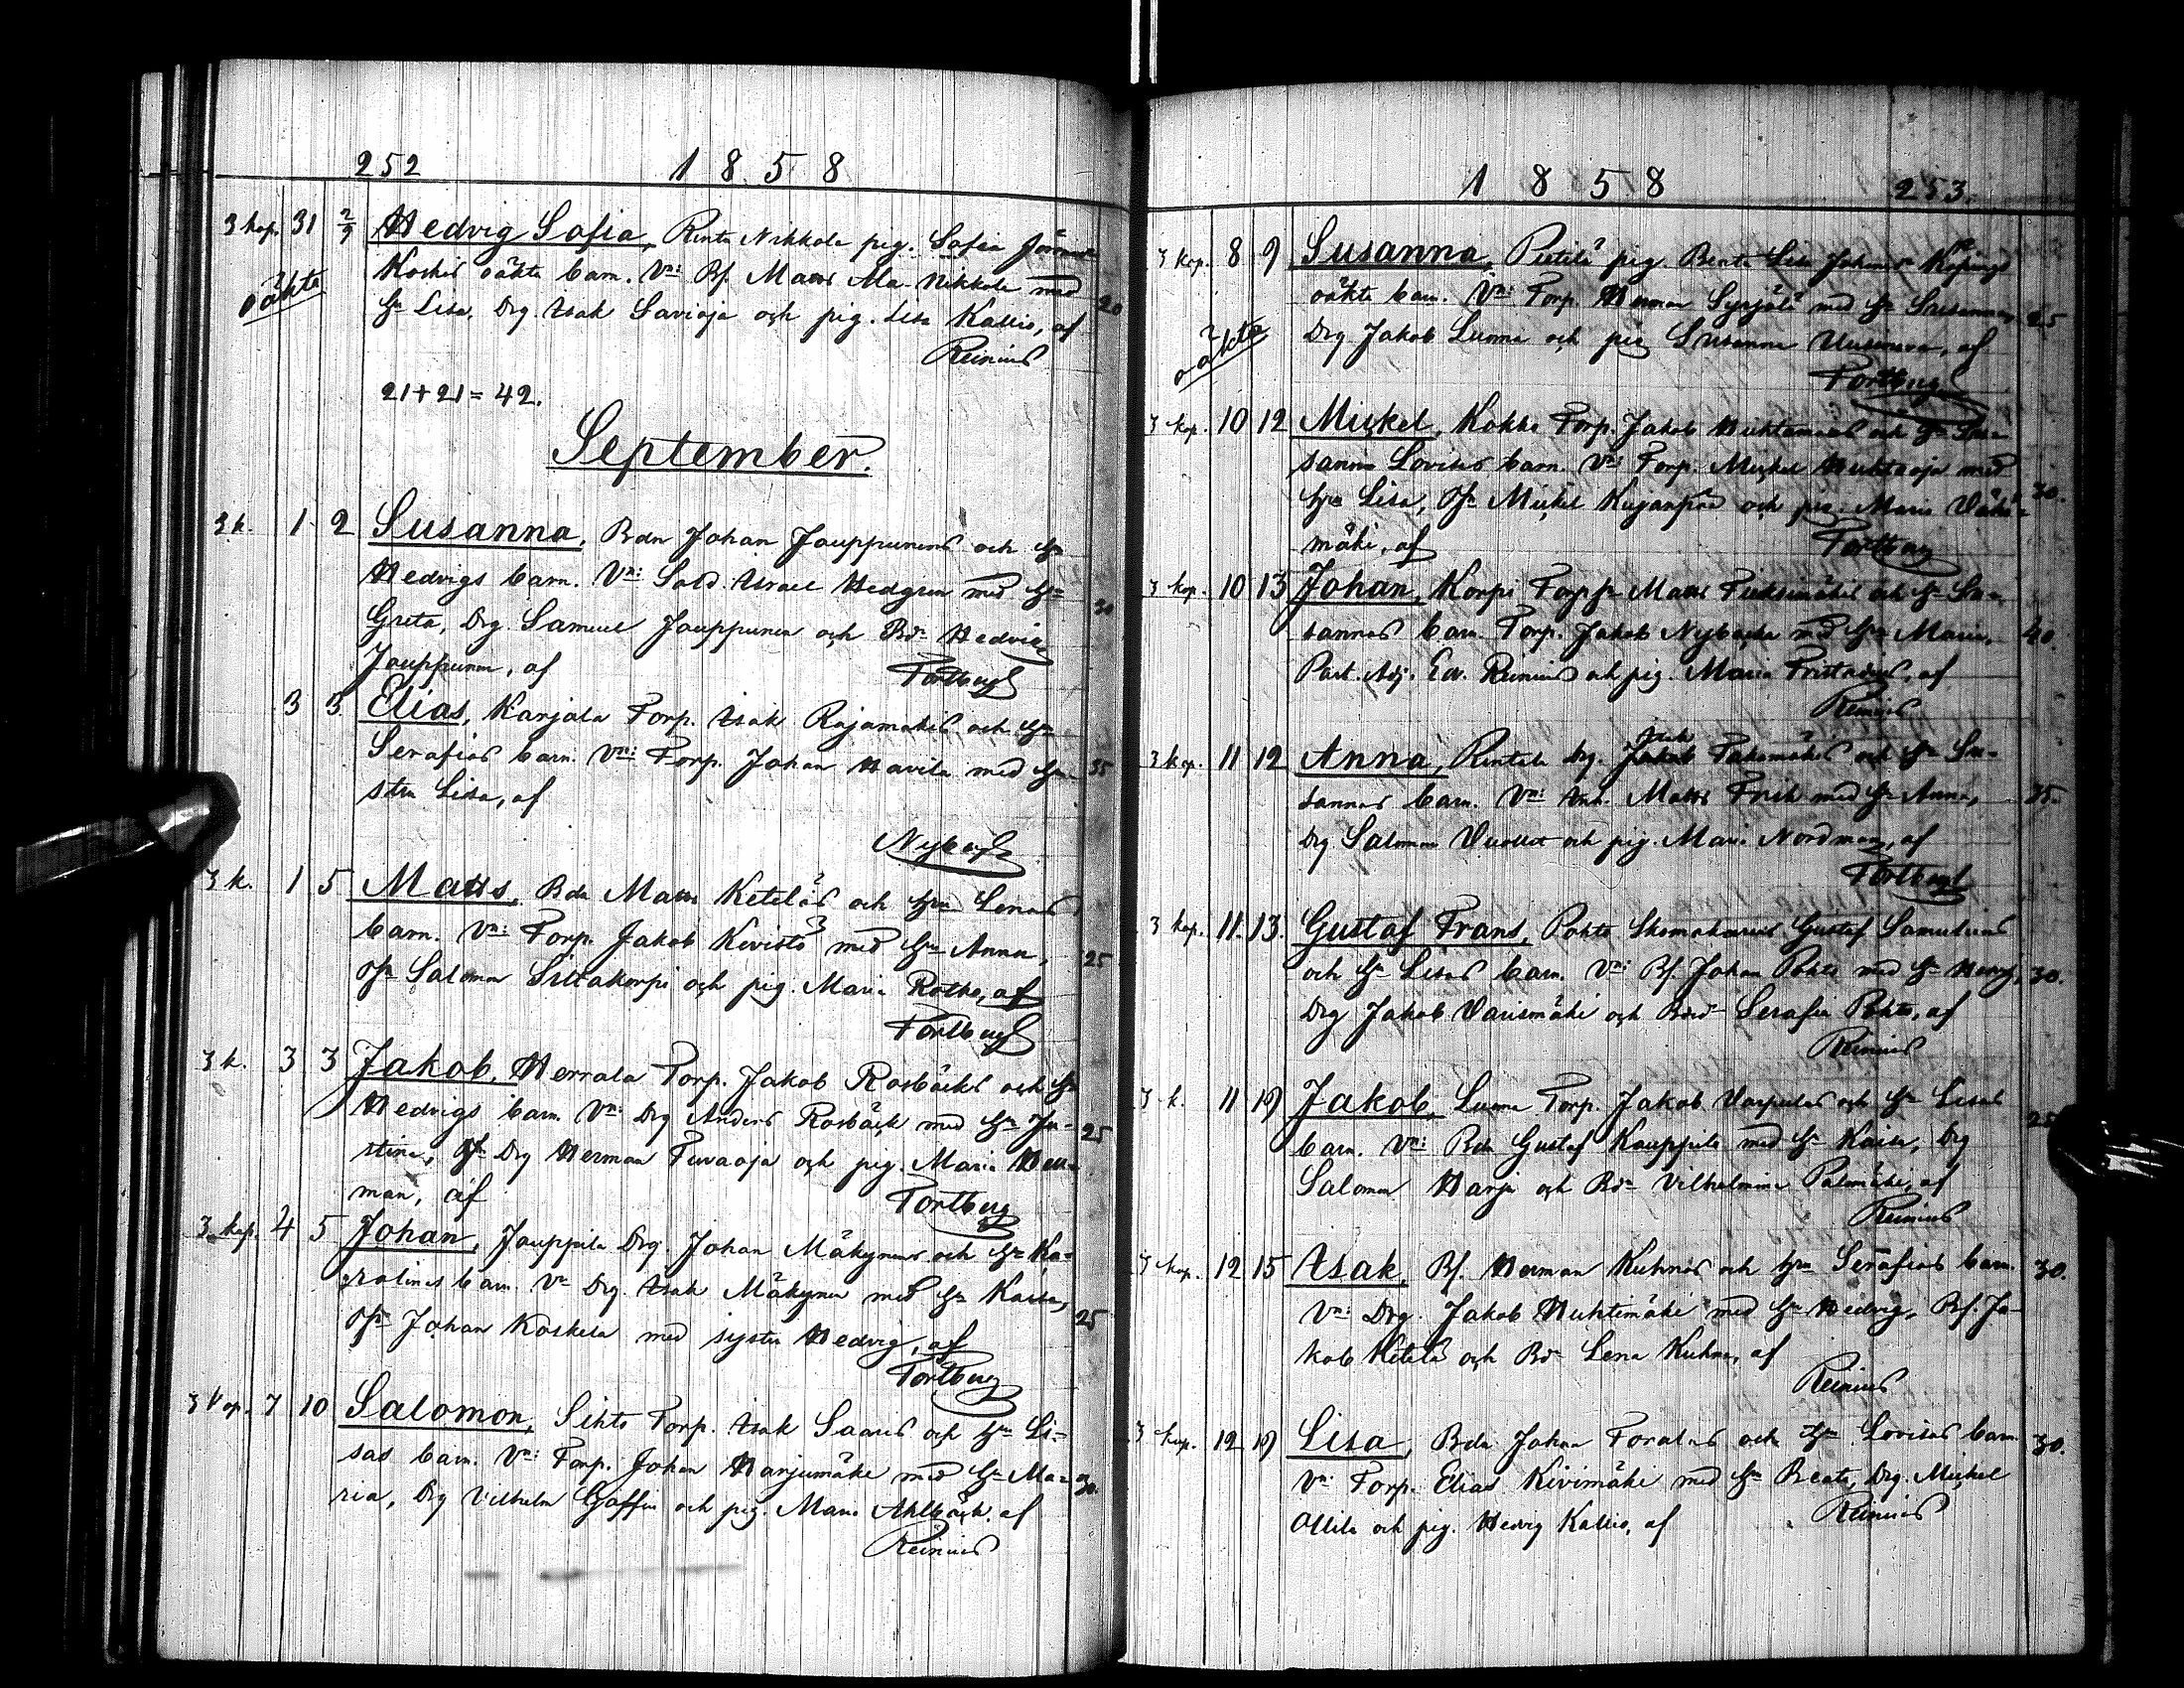 252 1858
3 kop. 31 2/9 Hedvig Sofia, Rinta Nikkola pig. Sofia
Koskis oäkta barn. Vn: Bf. Matts Ala-Nikkola med 20
oäkta
Hu Lisa, Drg. Isak Savioja och pig. Lisa Kallio, af
Reinius
21+21=42.
September.
3 k. 1 2 Susanna, Bdn Johan Jouppunens och Hu
Hedvigs barn. Vn: Sold. Israel Hedgren med Hu 30
Greta, Drg. Samuel Jouppunen och Bdr Hedvig
Jouppunen, af Fortberg
3 5 Elias, Karjala Torp. Isak Rajamäkis och Hu
Serafias barn. Vn: Torp. Johan Havila med Hu- 35
stru Lisa, af
Nyberg
3 k. 1 5 Matts, Bdn Matts Ketoläs och Hru Lenas
barn. Vn: Torp. Jakob Kivistö med Hru Anna, 25
Salomon Siltakorpi och pig. Maria Rothe, af
Fortberg
3 k. 3 3 Jakob, Herrala Torp. Jakob Rosbäcks och Hu
Hedvigs barn. Vn: Drg Anders Rosbäck med Hu Ju- 25
stina, Drg Herman Turvaoja och pig. Maria
man, af Fortberg
3 kop. 4 5 Johan, Jouppila Drg. Johan Mäkynens och Hu Ka-
rolines barn. Vn Drg. Isak Mäkynen med Hu Kaisa, 25
Johan Koskela med syster Hedvig, af
Fortberg
3 kop. 7 10 Salomon, Sihto Torp. Isak Saaris och Hu Li-
sas barn. Vn: Torp. Johan Harjumäki med Hu Ma- 30.
ria, Drg Vilhelm Gaffin och pig. Maria Ahlbäck, af
Reinius
1858 253.
3 kop. 8 9 Susanna, Pietilä pig. Beata Lisa Johansdr
oäkta barn. Vn: Torp. Herman Syrjälä med Hu Susanna, 25
oäkta
Drg Jakob Luoma och pig Susanna, af
Fortberg
3 kop. 10 12 Mickel, Kokko Torp. Jakob Huhtamäkis och Hu Su-
sanna Lovisas barn. Vn: Torp. Mickel Huhtaoja med
Hru Lisa, Mickel och pig. Maria Vähä- 30.
mäki, af Fortberg
3 kop. 10 13 Johan, Korpi Torp Matts och Hu Su-
sannas barn. Torp. Jakob Nybacka med Hru Maria, 40.
Past. Adj. Edv. Reinius och pig. Maria, af
Reinius
Isak
3 kop. 11 12 Anna, Rintala drg. Jakob Takamäkis och Hu Su-
sannas barn. Vn: Matts Frisk med Hu Anna, 25.
Drg Salomon Vuollet och pig. Maria Nordman, af
Fortberg
3 kop. 11. 13. Gustaf Frans, Pohto Skomakarens Gustaf Samuelsens
och Hu Lisas barn. Vn: Bf. Johan Pohto med Hu Hedvig, 30.
Drg Jakob Varismäki och Serafia Pohto, af
Reinius
3 k. 11 19 Jakob, Luoma Torp. Jakob Varpulas och Hu Lisas 25
barn. Vn: Bdn Gustaf Kauppila med Hu Kaisa, Drg
Salomon Harju och Bdr Vilhelmina Palomäki, af
Reinius
3 kop. 12 15 Isak, Bf. Herman Kuhnas och Hru Serafias barn. 30.
Vn: Drg. Jakob Huhtimäki med Hu Hedvig, Bf. Ja-
kob Ketola och Bdr Lena Kuhna, af
Reinius
3 kop. 12 19 Lisa, Bdn Johan Foralas och Hu Lovisas barn 30.
Vn: Torp. Elias Kivimäki med Hu Beata, Drg. Mickel
Ollila och pig. Hedvig Kallio, af Reinius